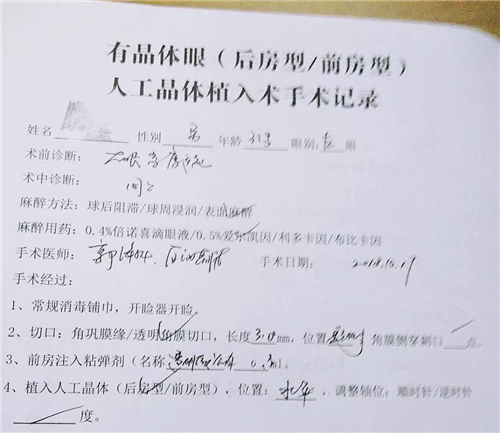 有晶体眼（后房型/前房型）
人工晶体植入术手术记录
姓名 性别 男 年龄 眼别: 右 眼
术前诊断:
术中诊断: 同上
麻醉方法: 球后阻滞/球周浸润/表面麻醉
麻醉用药: 0.4%倍诺喜滴眼液/0.5%爱尔凯因/利多卡因/布比卡因
手术医师: 手术日期: 2018.10.17
手术经过:
1、常规消毒铺巾，开睑器开睑。
2、切口: 角巩膜缘/透明角膜切口，长度3.0mm，位置 角膜侧穿刺口 点。
3、前房注入粘弹剂（名称 0.3ml。
4、植入人工晶体（后房型/前房型），位置: 水平，调整轴位: 顺时针/逆时针
度。